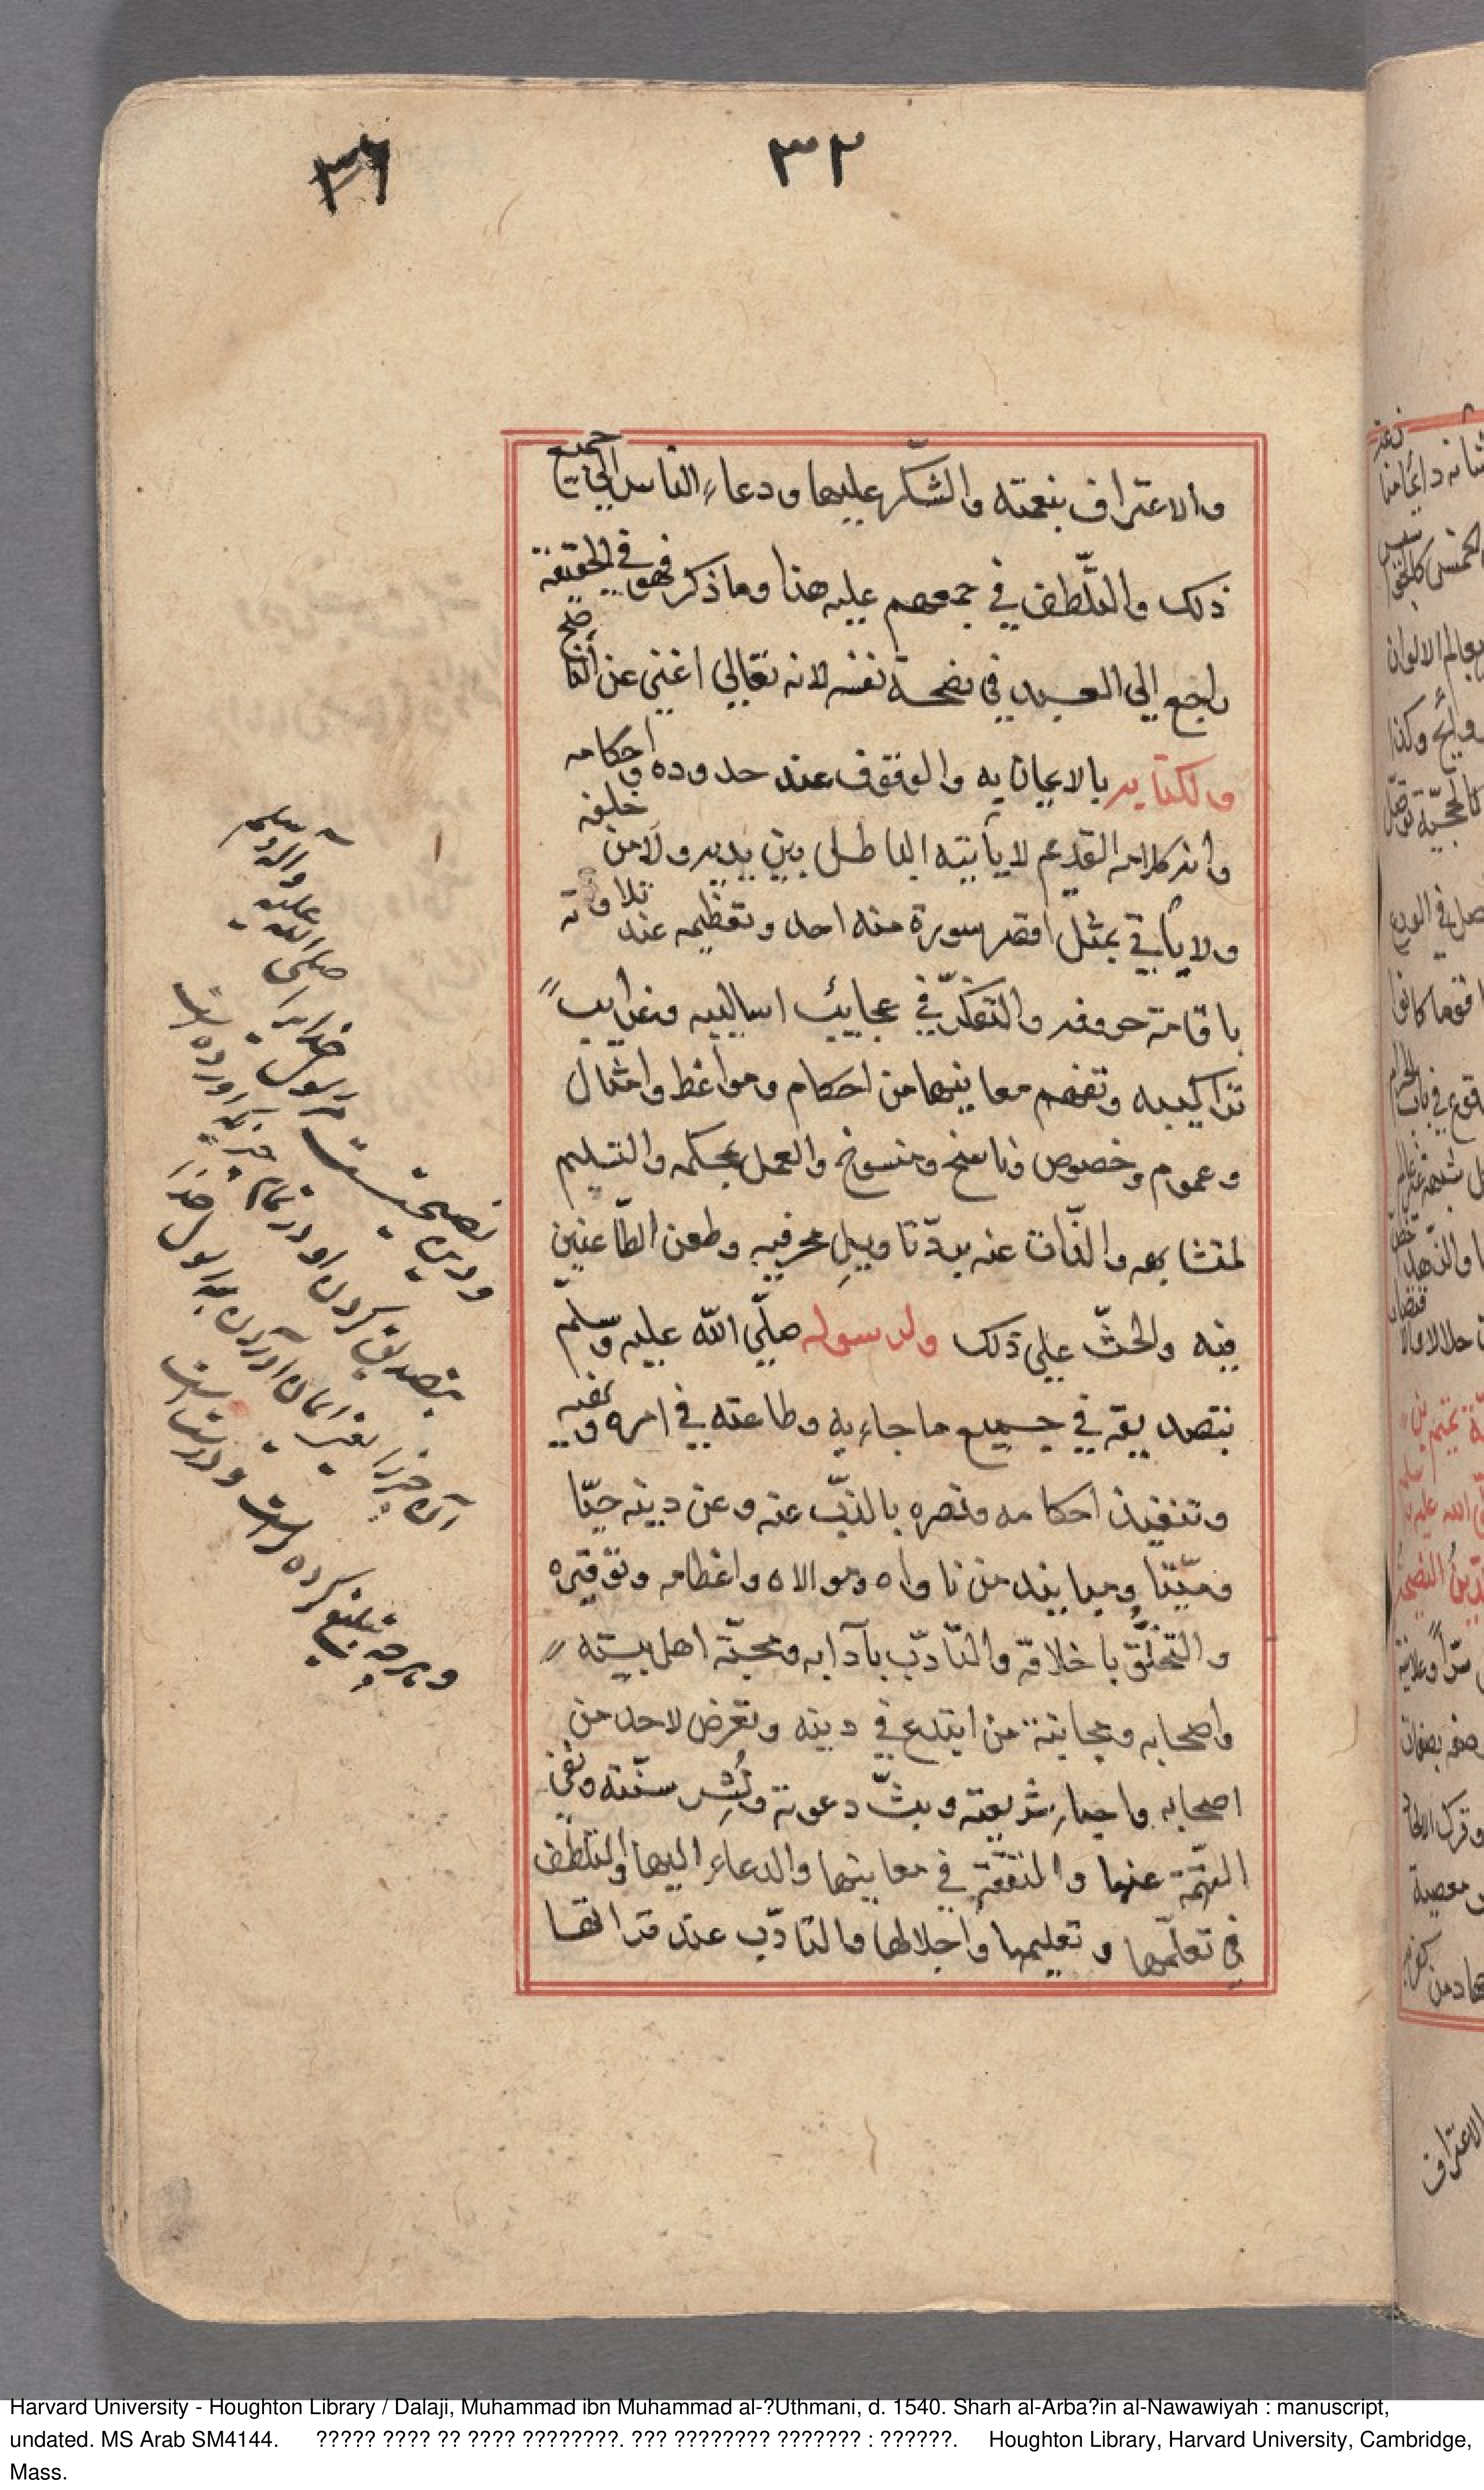 ٣٢
٣٦
والاعتراف بنعمته والشكر عليها ودعاء الناس الي جميع
ذلك والتلّطف في جمعهم عليه هذا وما ذكر فهو في الحقيقة
راجع الي العبد في نصحه نفسه لانه تعالي اغني عن الناصح
ولكتابه بالايمان به والوقوف عند حدوده واحكامه
وانه كلامه القديم لا يأتيه الباطل من بين يديه ولا من خلفه
ولا يأتي بمثل اقصر سورة منه احد وتعظيمه عند تلاوته
باقامة حروفه والتفكّر في عجايب اساليبه وغرايب
تراكيبه وتفهم معانيها من احكام ومواعظ وامثال
وعموم وخصوص وناسخ ومنسوخ والعمل بمحكمه والتسليم
لمتشابهه والذّات عنه بردّ تاويل محرفيه وطعن الطّاعنين
فيه والحثّ علي ذلك ولرسوله صلّي الله عليه وسلّم
بتصديقه في جميع ما جاء به وطاعته في امره ونهيه
وتنفيذ احكامه ونصره بالذبّ عنه وعن دينه حيّا
وميّتا ومباينه من ناواه وموالاه واعظامه وتوقيره
والتخلّق باخلاقه والتّأدّب بآدابه ومحبّة اهل بيته
واصحابه ومجانبة من ابتدع في دينه وتعرض لاحد من
اصحابه واحياء شريعته وبثّ دعوته ونُشر سنّته ونفي
التهمة عنها والمتفقّه في معانيها والدعاء اليها والتلطّف
في تعلّمها وتعليمها واجلالها والتأدّب عند قراتها
ودين نصيحت مر رسول خدايراست صلى الله عليه وآله وسلم
بتصديق كردن او در تمام چيزيكه آورده است
آن چيز را يعنى ايمان آوردن به رسول خدا
و هرچه تبليغ كرده راست و درست است
Harvard University - Houghton Library / Dalaji, Muhammad ibn Muhammad al-?Uthmani, d. 1540. Sharh al-Arba?in al-Nawawiyah : manuscript,
undated. MS Arab SM4144. ????? ???? ?? ???? ????????. ??? ???????? ??????? : ??????. Houghton Library, Harvard University, Cambridge,
Mass.